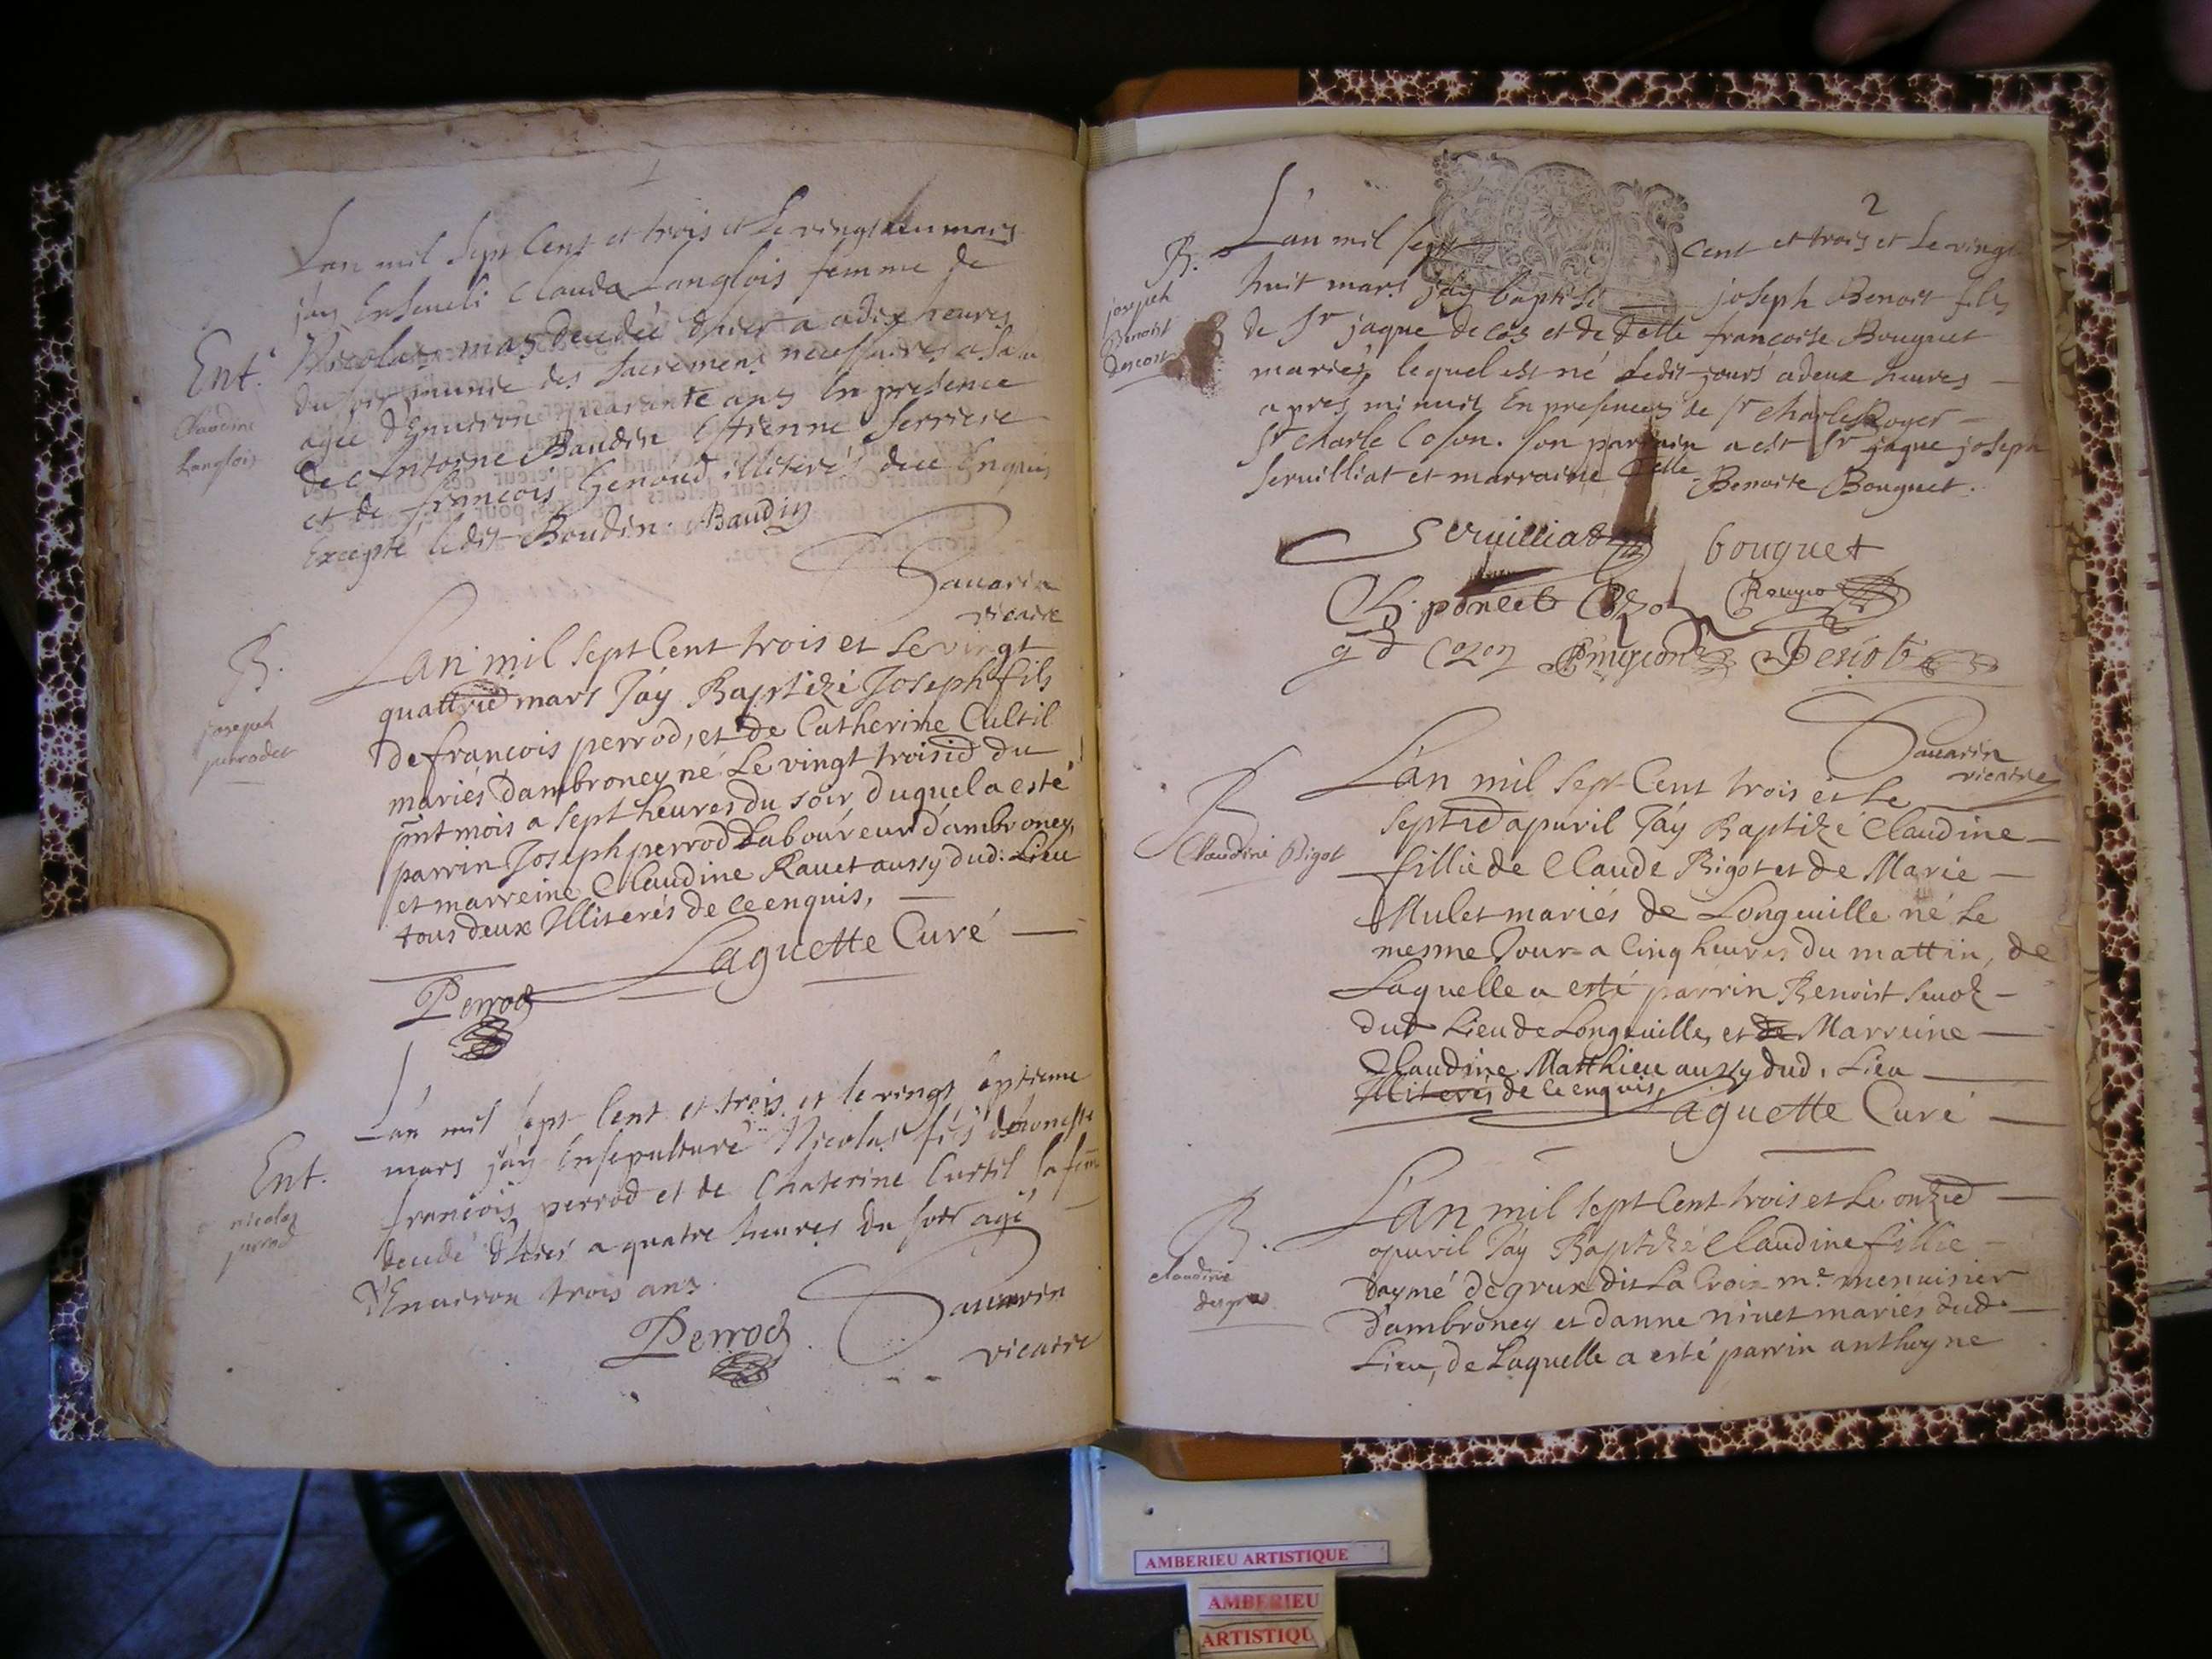 Lan mil sept Cent et trois et Le vingt un mars
jay Enseveli Clauda Langlois femme de
Nicolas mas decedée d'hier a dix heures
du soir munie des sacremens necessaires a salu
agée d'Environ quarante ans En presence
de Antoine Baudin Etienne Serriere
et de françois Genoud illiterés de ce Enquis
Excepté ledit Baudin. Baudin
Ent.
Claudine
Langlois
Sauarin
vicaire
Lan mil sept Cent trois et le vingt
quattried mars Jáy Baptizé Joseph fils
de françois perrod, et de Catherine Cultil
mariés dambroney né Le vingt troisid du
pnt mois a sept heures du soir, duquel a esté
parrin Joseph perrod Laboureur dambroney,
et marreine Claudine Rauet aussy dud. Lieu
tous deux Illiterés de ce enquis,
B.
joseph
Laguette Curé
Perrod
Lan mil sept Cent et trois et le vingt eptieme
mars jay Ensepulturé Nicolas fils d'honeste
francois perrod et de Chaterine Curtil sa fem
decedé d'hier a quatre heures du soir agé
d'Enuiron trois ans.
Ent.
nicolas
perrod
Perrod
Sauarin
vicaire
2
L'an mil sept Cent et trois et Le vingt
huit mars jay baptisé joseph Benoit fils
de Sr jaque decos et de Delle francoise Bouguet
mariés, lequel est né Ledit jours a deux heures
apres minuit En presences de Sr Charle Royer
Sr Charle Coson. Son parrain a est Sr jaque joseph
Seruilliat et marraine Delle Benoite Bouguet.
B.
joseph
Benoist
descost
Seruilliat bouguet
Ch. poncet Cozon
gd Cozon
Sauarin
vicaire
L'an mil sept Cent trois et le
septied apuril Jáy Baptizé Claudine
fillie de Claude Bigot et de Marie
Mulet mariés de Longeuille né le
mesme Jour a Cinq heures du mattin, de
Laquelle a esté parrin Benoist
dud Lieu de Longeuille, et de Marreine
Claudine Matthieu aussy dud. Lieu
Illiterés de ce enquis,
B
Claudine Bigot
Laguette Curé
L'an mil sept Cent trois et Le onzied
apuril Jáy Baptizé Claudine fillie
daymé degrux dit La Croix me menuisier
dambroney et danne niuet mariés dud.
Lieu, de Laquelle a esté parrin anthoyne
B.
claudine
AMBERIEU ARTISTIQUE
AMBERIEU
ARTISTIQU